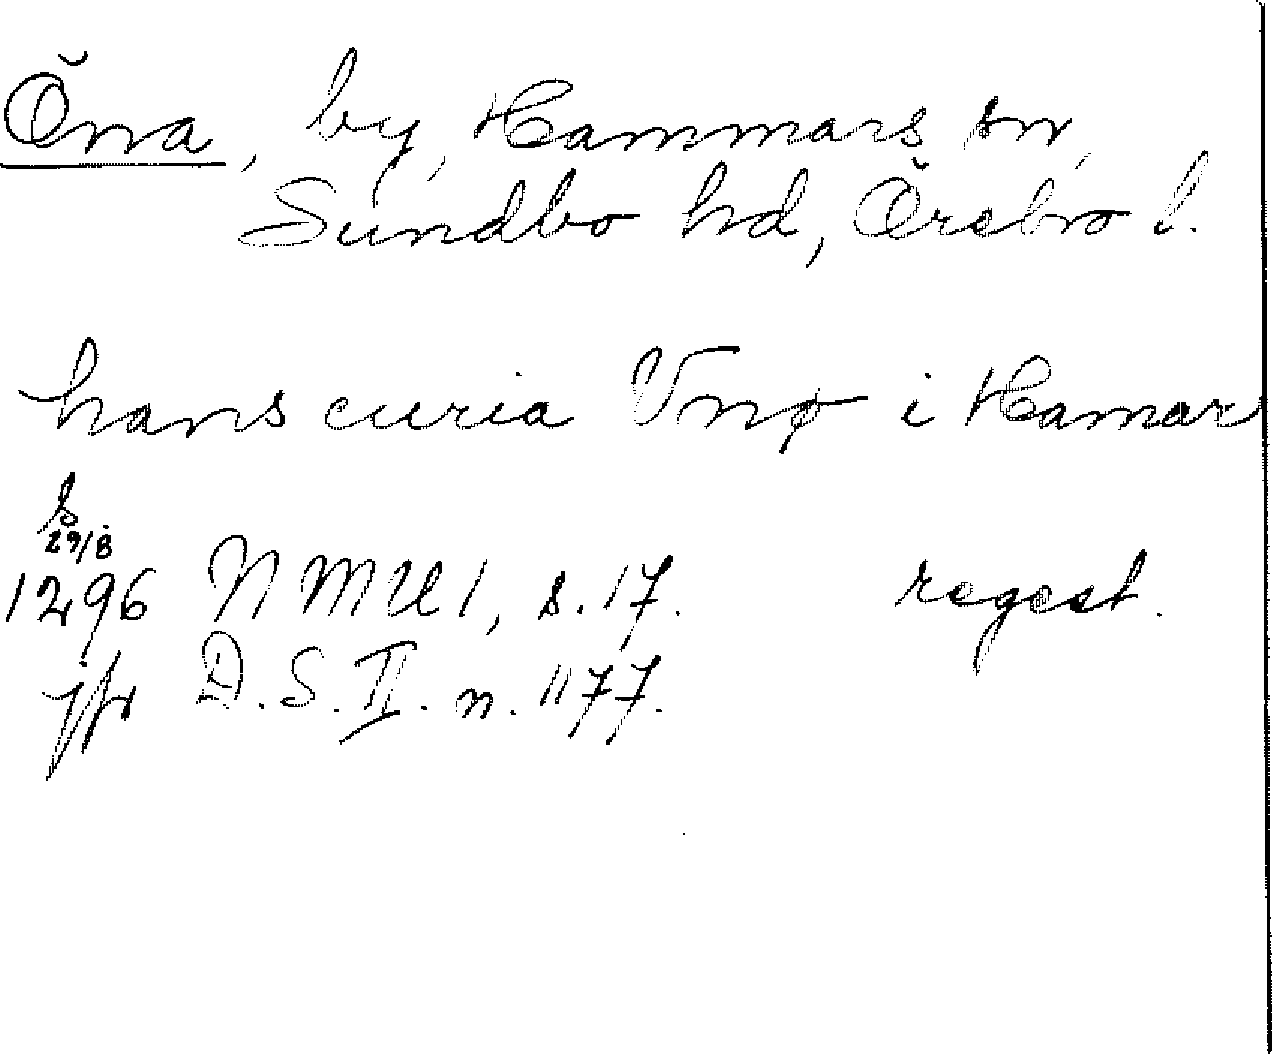 Öna, by, Hammars sn,
Sundbo hd, Örebro l.
hans curia Vnø i Hamar
29/8
1296 NMU 1, s. 17. regest.
jfr D. S. II. n. 1177.